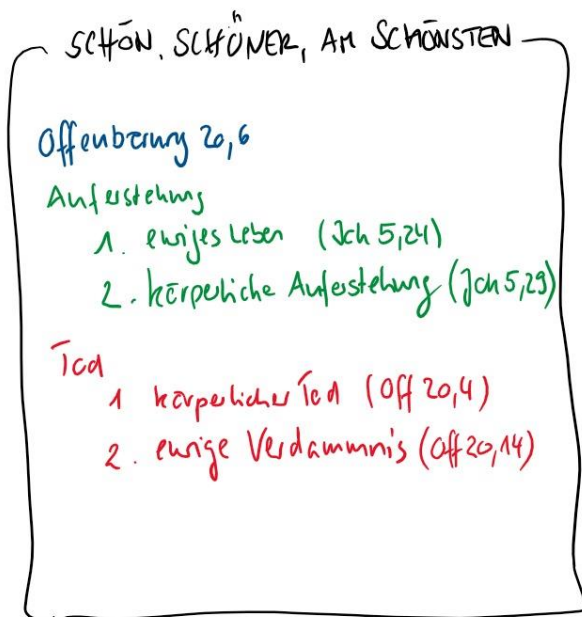 SCHÖN, SCHÖNER, AM SCHÖNSTEN
Offenbarung 20,6
Auferstehung
1. ewiges Leben (Joh 5,24)
2. körperliche Auferstehung (Joh 5,29)
Tod
1 körperlicher Tod (Off 20,4)
2. ewige Verdammnis (Off 20,14)